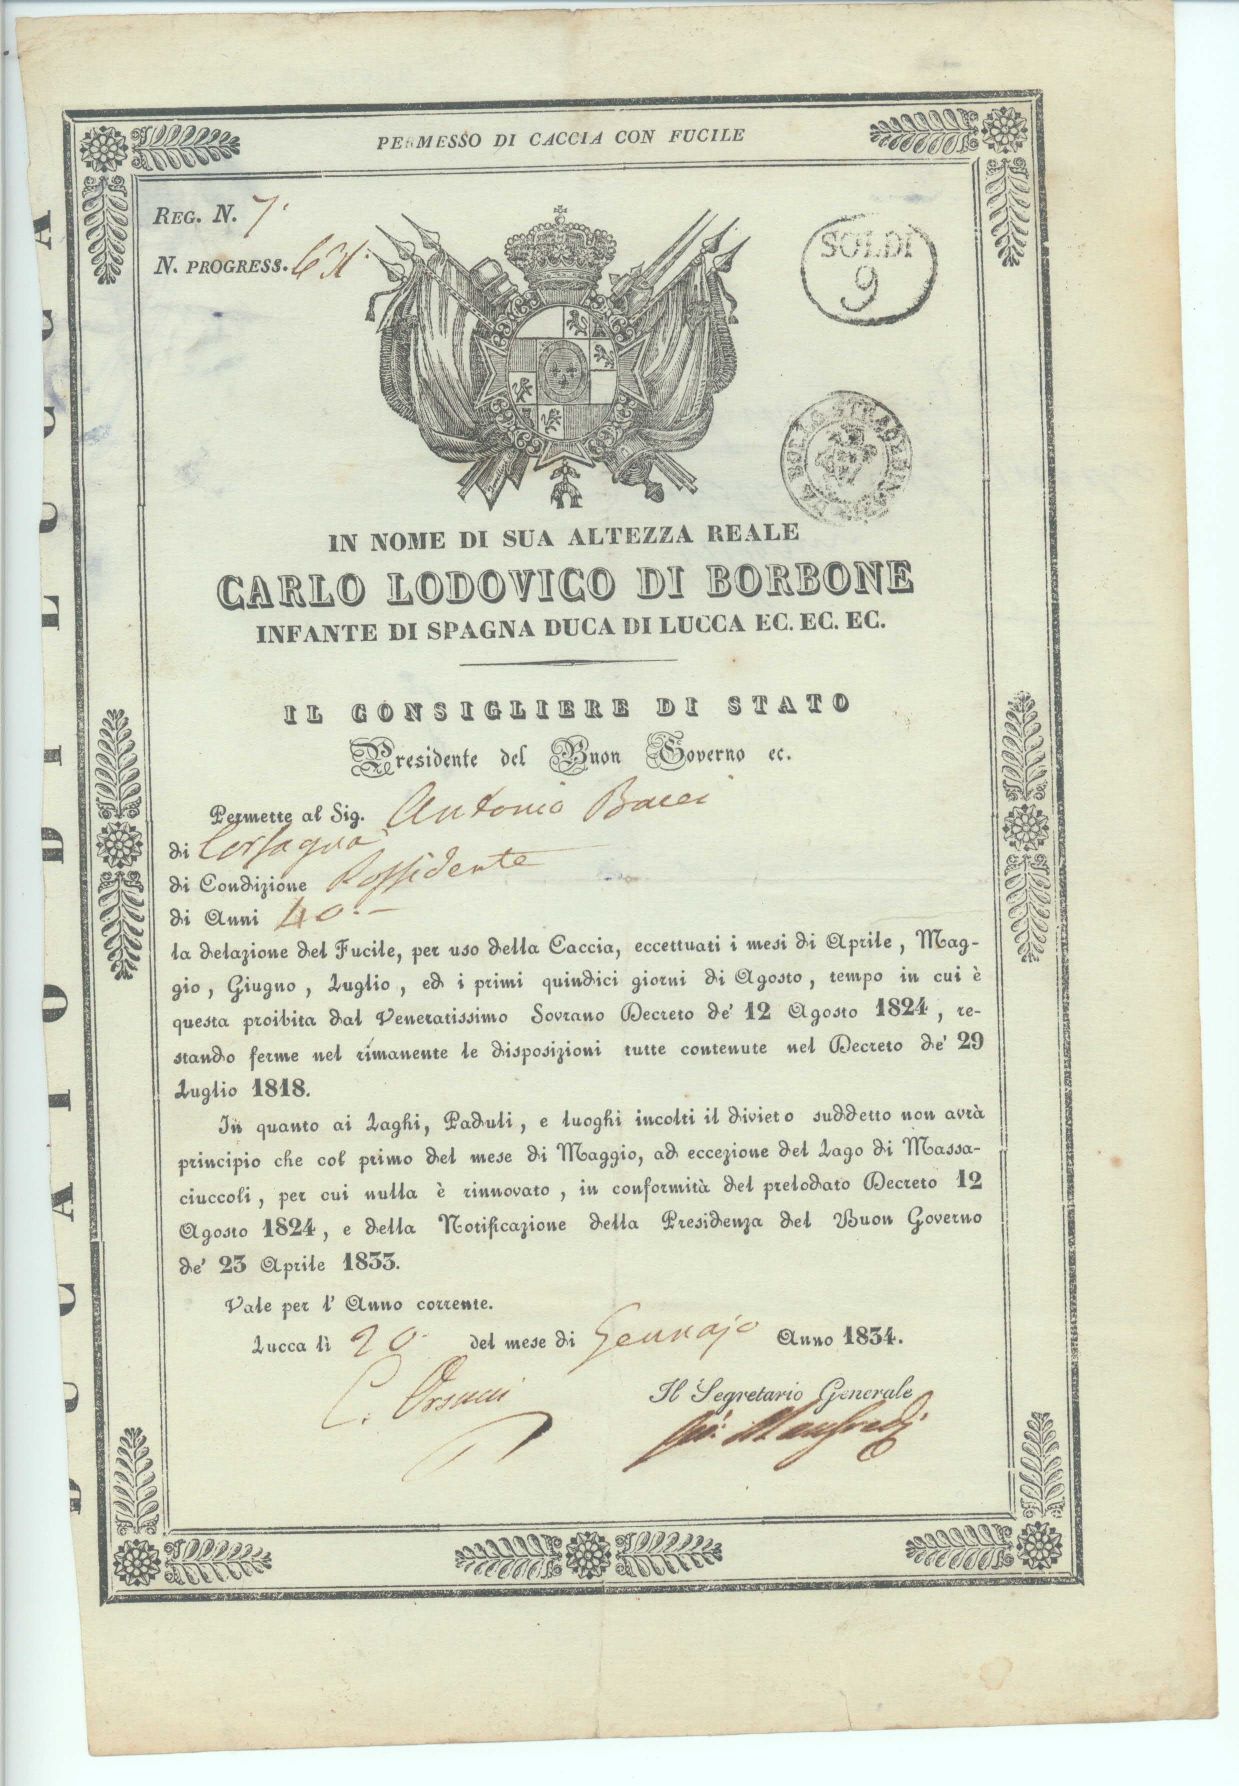 PERMESSO DI CACCIA CON FUCILE
REG. N. 7.
N. PROGRESS.
SOLDI
9
BOLLO STRAORDINARIO
IN NOME DI SUA ALTEZZA REALE
CARLO LODOVICO DI BORBONE
INFANTE DI SPAGNA DUCA DI LUCCA EC. EC. EC.
IL CONSIGLIERE DI STATO
Presidente del Buon Governo ec.
Permette al Sig. Antonio Bacci
di Corsagna
di Condizione Possidente
di Anni 40.-
la delazione del Fucile, per uso della Caccia, eccettuati i mesi di Aprile, Mag-
gio, Giugno, Luglio, ed i primi quindici giorni di Agosto, tempo in cui è
questa proibita dal Veneratissimo Sovrano Decreto de' 12 Agosto 1824, re-
stando ferme nel rimanente le disposizioni tutte contenute nel Decreto de' 29
Luglio 1818.
In quanto ai Laghi, Paduli, e luoghi incolti il divieto suddetto non avrà
principio che col primo del mese di Maggio, ad eccezione del Lago di Massa-
ciuccoli, per cui nulla è rinnovato, in conformità del prelodato Decreto 12
Agosto 1824, e della Notificazione della Presidenza del Buon Governo
de' 23 Aprile 1833.
Vale per l' Anno corrente.
Lucca lì 20. del mese di Gennajo Anno 1834.
C. Orsucci
Il Segretario Generale
Gio. Manfredi
DUCATO DI LUCCA